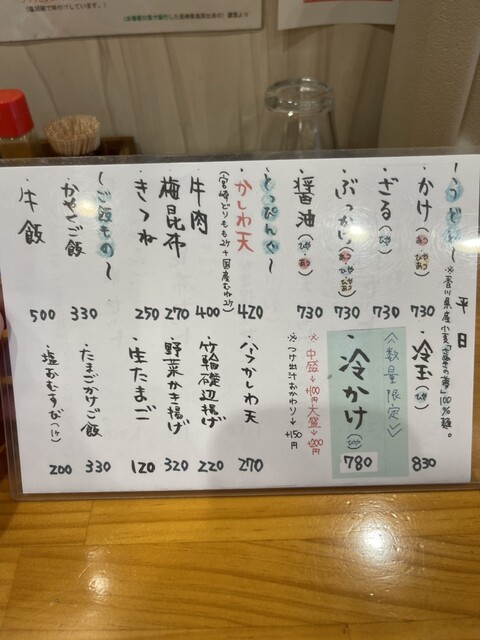 平日
〜うどん〜 ※香川県産小麦「さぬきの夢」100%麺。
・かけ(あつ・ひやあつ) 730
・ざる(ひや) 730
・ぶっかけ(あつ・ひや・ひやあつ) 730
・醤油(ひや・あつ) 730
・冷玉(ひや) 830
《数量限定》
・冷かけ(ひや) 780
※中盛→+100円 大盛→+200円
※つけ出汁おかわり→+150円
・とっぴんぐ・
・かしわ天 420
・牛肉 400
・梅昆布 270
・きつね 250
・ハーフかしわ天 270
・竹輪磯辺揚げ 220
・野菜かき揚げ 320
・生たまご 120
〜ご飯もの〜
・かやくご飯 330
・牛飯 500
・たまごかけご飯 330
・塩おむすび(1ケ) 200